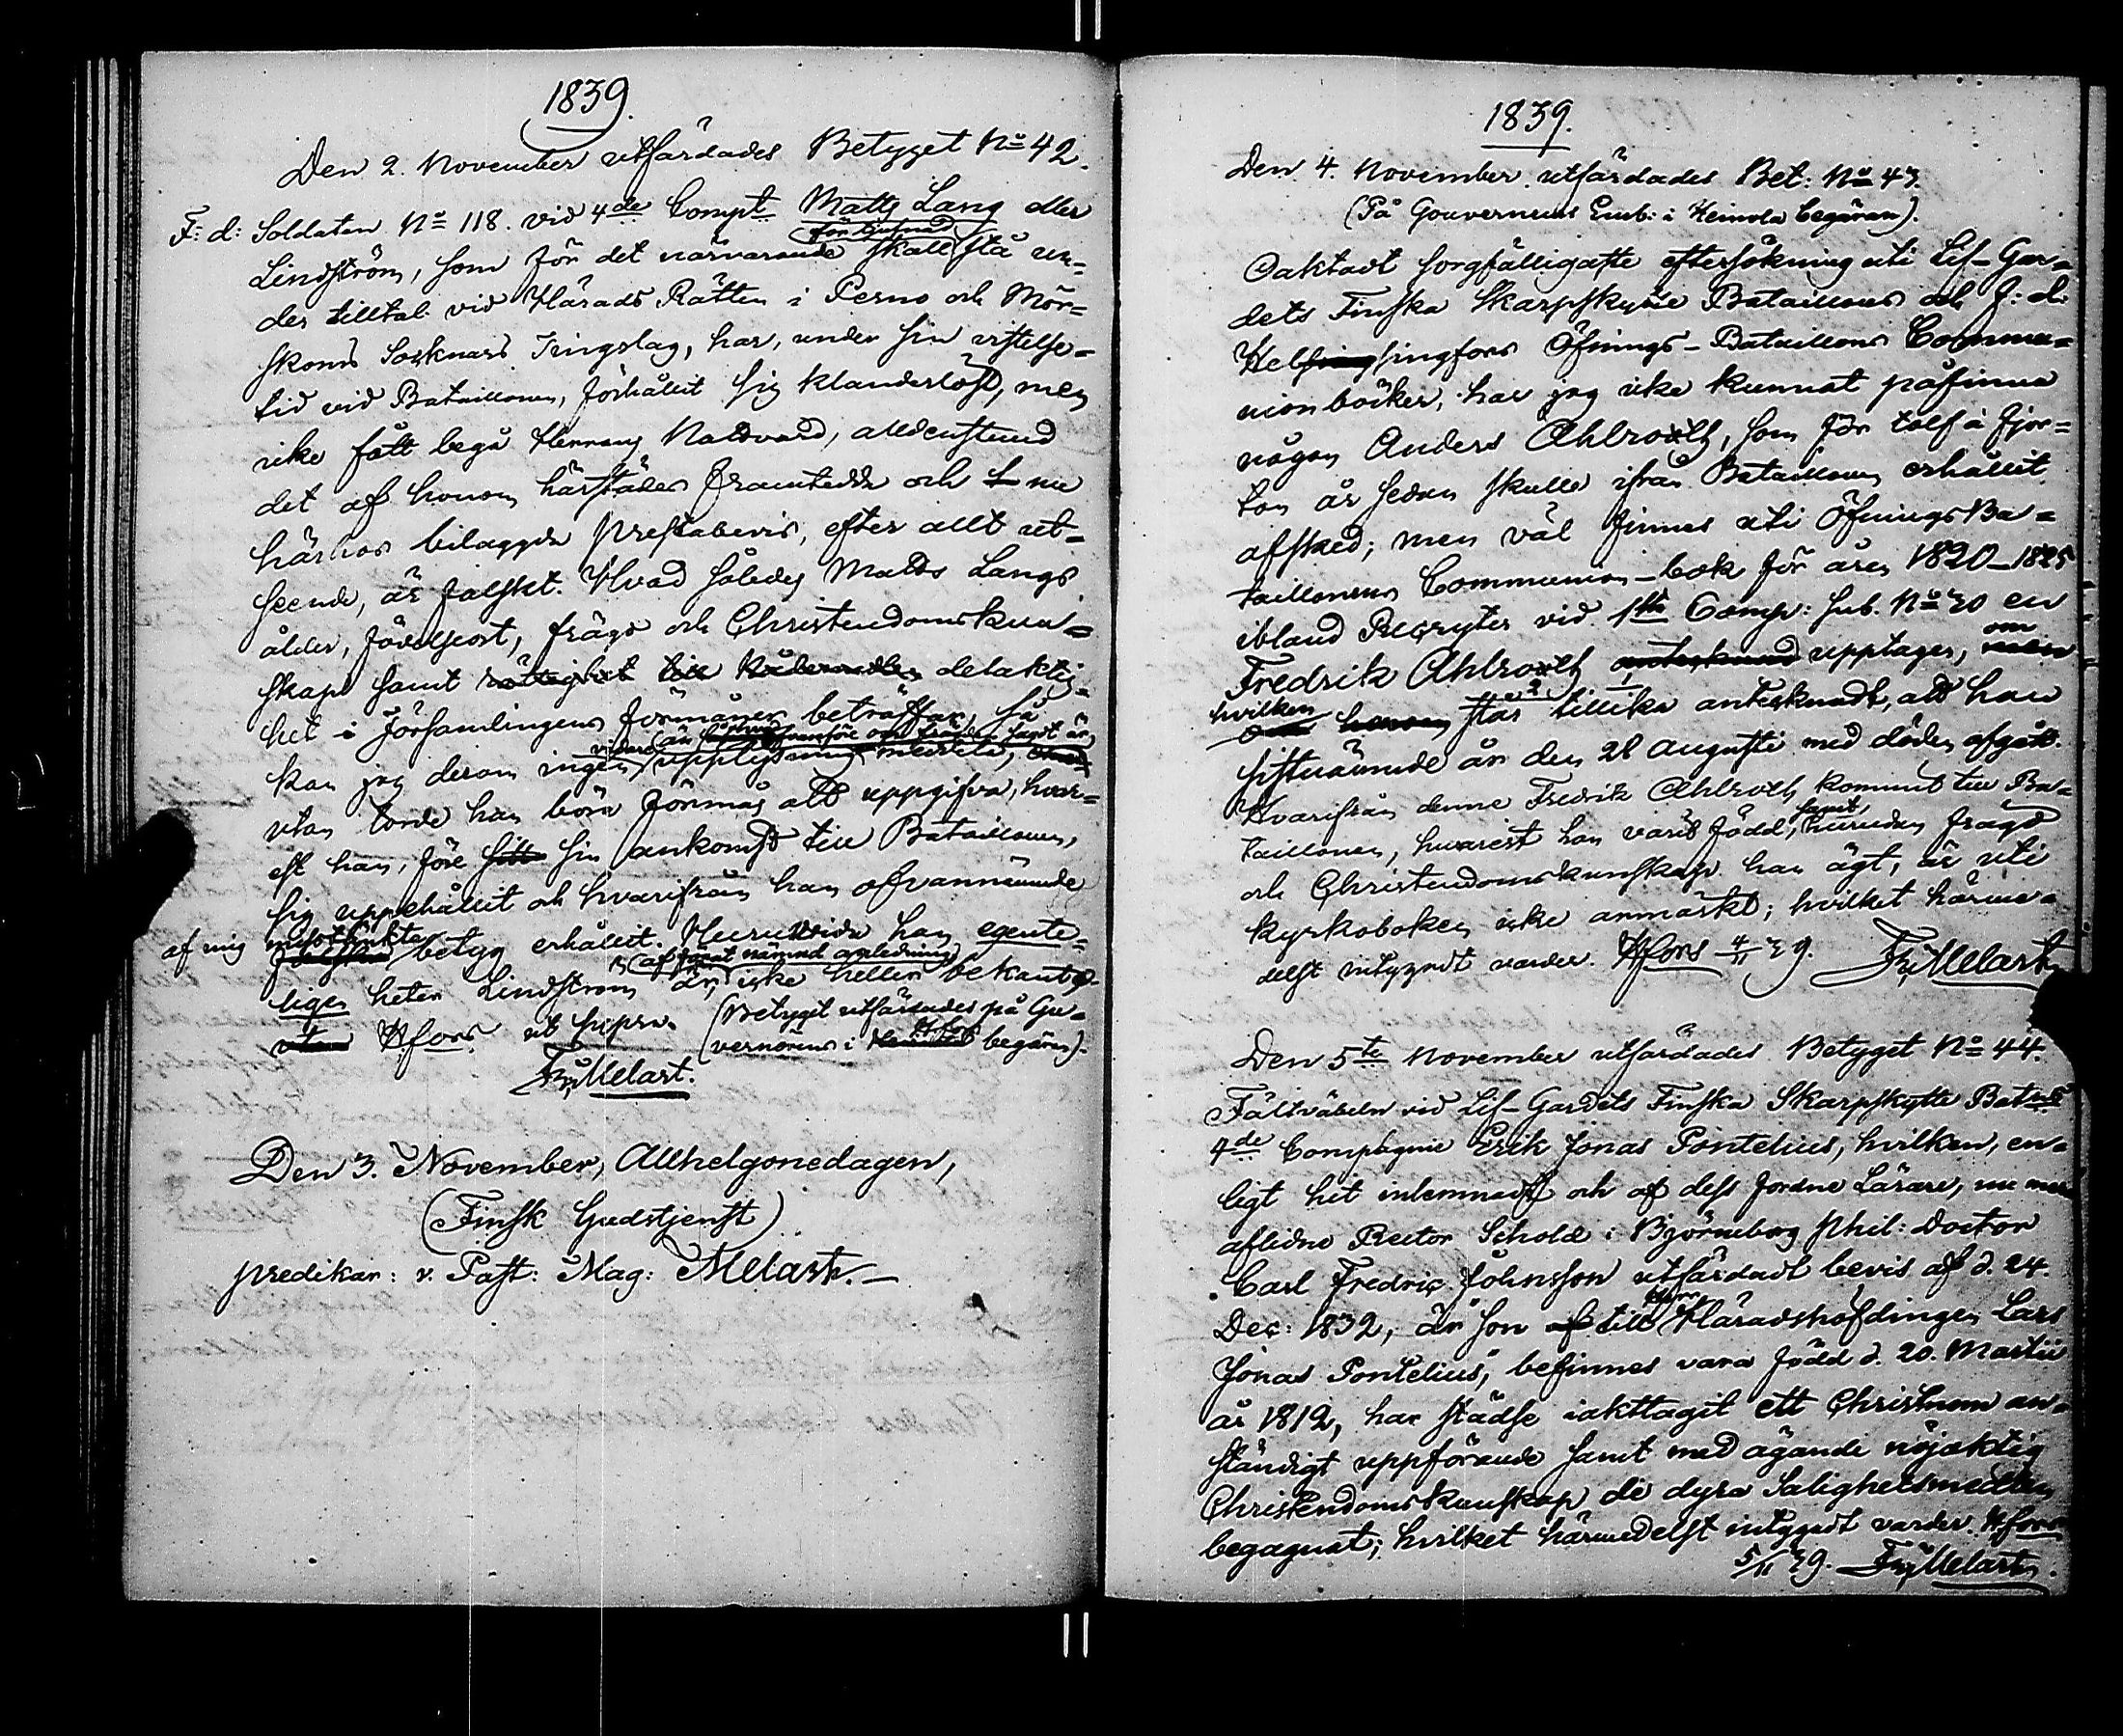 1839.
Den 2. November utfärdades Betyget No 42.
F: d: Soldaten No 118. vid 4de Compt Matts Lang eller
för tjufnad
Lindström, som för det närvarande skall stå un=
der tilltal vid Härads Rätten i Perno och Mör=
skoms Socknars Tingslag, har, under sin vistelse=
tid vid Bataillonen, förhållit sig klanderlöst, men
icke fått begå Herrans Nattvard, alldenstund
det af honom härstädes framtedda och nu
härhos bilaggda Prestabevis, efter allt ut=
seende, är falskt. Hvad således Matts Langs
ålder, födelseort, frägd och Christendomskun=
skap samt rättighet till delaktig=
het i Församlingens förmåner beträffar, så
vidare än hvad framföre om frägden sagt är,
kan jag derom ingen upplysning meddela,
utan torde han böra förmås att uppgifva, hvar=
est han, före sin ankomst till Bataillonen,
sig uppehållit och hvarifrån han ofvannämnde
af mig misstänkta betyg erhållit. Huruvida han egente=
af förut nämnd anledning
ligen heter Lindström är, icke heller bekant.
Hfors ut supra. (Betyget utfärdades på Gu=
vernörens i Hfors begäran).
Fr. Melart.
Den 3. November, Allhelgonedagen,
(Finsk Gudstjenst)
predikar: v. Past: Mag: Melart. —
1839.
Den 4. November utfärdades Bet: No 43.
(På Gouverneurs Emb: i Heinola begäran).
Oaktadt sorgfälligaste eftersökning uti Lif-Gar=
dets Finska Skarpskytte Bataillons och f: d:
Helsingfors Öfnings-Bataillons Commu=
nionböcker, har jag icke kunnat påfinna
någon Anders Ahlroth, som för tolf à fjor=
ton år sedan skulle ifrån Bataillonen erhållit
afsked; men väl finnes uti Öfnings Ba=
taillonens Communion-bok för åren 1820-1825
ibland Recryter vid 1sta Comp: sub. No 30 en
Fredrik Ahlroth upptagen, om
hvilken står tillika antecknadt, att han
sistnämnde år den 28 Augusti med döden afgått.
Hvarifrån denne Fredrik Ahlroth kommit till Ba=
taillonen, hvarest han varit född, samt hurudan frägd
och Christendomskunskap han ägt, är uti
kyrkoboken icke anmärkt; hvilket härme=
delst intygadt varder. Hfors 4/11 39. Fr. Melart
Den 5te November utfärdades Betyget No 44.
Fältväbeln vid Lif-Gardets Finska Skarpskytte Batns
4de Compagnie Erik Jonas Pontelius, hvilken, en=
ligt hit inlemnadt och af dess fordne Lärare, nu mera
aflidne Rector Scholæ i Björneborg Phil: Doctor
Carl Fredric Johnsson utfärdadt bevis af d. 24.
Dec: 1832, "är son af till Herr Häradshöfdingen Lars
Jonas Pontelius", befinnes vara född d. 20. Martii
år 1812, har städse iakttagit ett Christnom an=
ständigt uppförande samt med ägande nöjaktig
Christendomskunskap de dyra Salighetsmedlen
begagnat; hvilket härmedelst intygadt varder. Hfors
5/11 39. Fr. Melart.